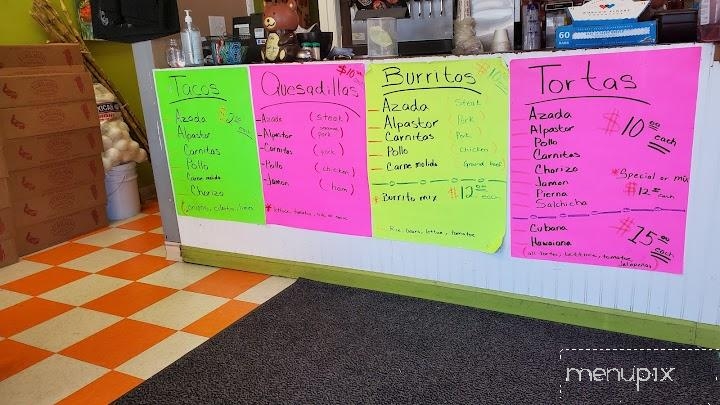 Tacos
Azada
Alpastor
Carnitas
Pollo
Carne molida
Chorizo
$2.00
each
Quesadillas
$10.00
Azada (steak)
Alpastor
pork)
Carnitas (pork)
Pollo (chicken)
Jamon (ham)
* lettuce, tomatoe,
Burritos
Azada (Steak)
Alpastor (Pork)
Carnitas (Pork
Pollo (Chicken)
Carne molida (Ground beef)
* Burrito mix $12.00
Rice, beans, lettuce, tomatoe
Tortas
Azada
Alpastor
Pollo
Carnitas
Chorizo
Jamon
Pierna
Salchicha
$10.00
each
*Special or mix
$12.00 each
Cubana
Hawaiana
$15.00
each
(all tortas, lettuce, tomatoe
Jalapeños)
60
menupix